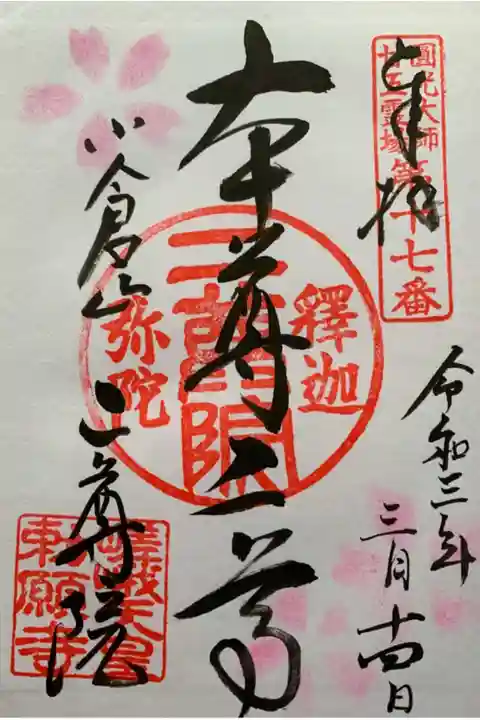 奉拝
圓光大師
廿五霊場
第十七番
令和三年
三月十四日
本尊二尊
釋迦
二尊院
弥陀
小倉山 二尊院
嵯峨天皇
勅願寺